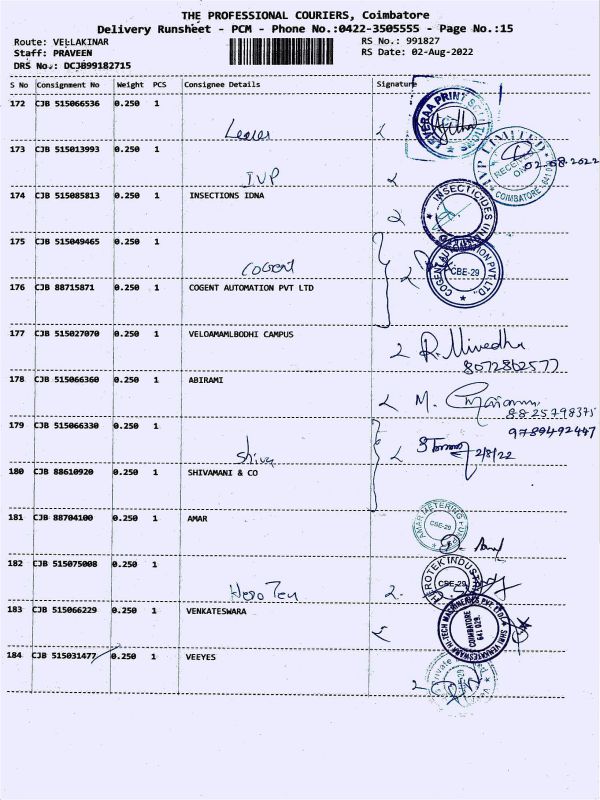 THE PROFESSIONAL COURIERS, Coimbatore
Delivery Runsheet - PCM - Phone No.:0422-3505555 - Page No.:15
Route: VELLAKINAR RS No.: 991827
Staff: PRAVEEN RS Date: 02-Aug-2022
DRS No.: DCJB99182715
S No Consignment No Weight PCS Consignee Details Signature
172 CJB 515066536 0.250 1
173 CJB 515013993 0.250 1
02.08.2022
IVP
174 CJB 515085813 0.250 1 INSECTIONS IDNA
175 CJB 515049465 0.250 1
COGENT
176 CJB 88715871 0.250 1 COGENT AUTOMATION PVT LTD
COGENT AUTOMATION PVT. LTD. CBE-29
177 CJB 515027070 0.250 1 VELOAMAMLBODHI CAMPUS
8072862577
178 CJB 515066360 0.250 1 ABIRAMI
M.
8825798375
179 CJB 515066330 0.250 1
9789492447
Shiva
2/8/22
180 CJB 88610920 0.250 1 SHIVAMANI & CO
181 CJB 88704100 0.250 1 AMAR
CBE-29
182 CJB 515075008 0.250 1
Hero Teu
CBE-29
183 CJB 515066229 0.250 1 VENKATESWARA
COIMBATORE 641 029.
184 CJB 515031477 0.250 1 VEEYES